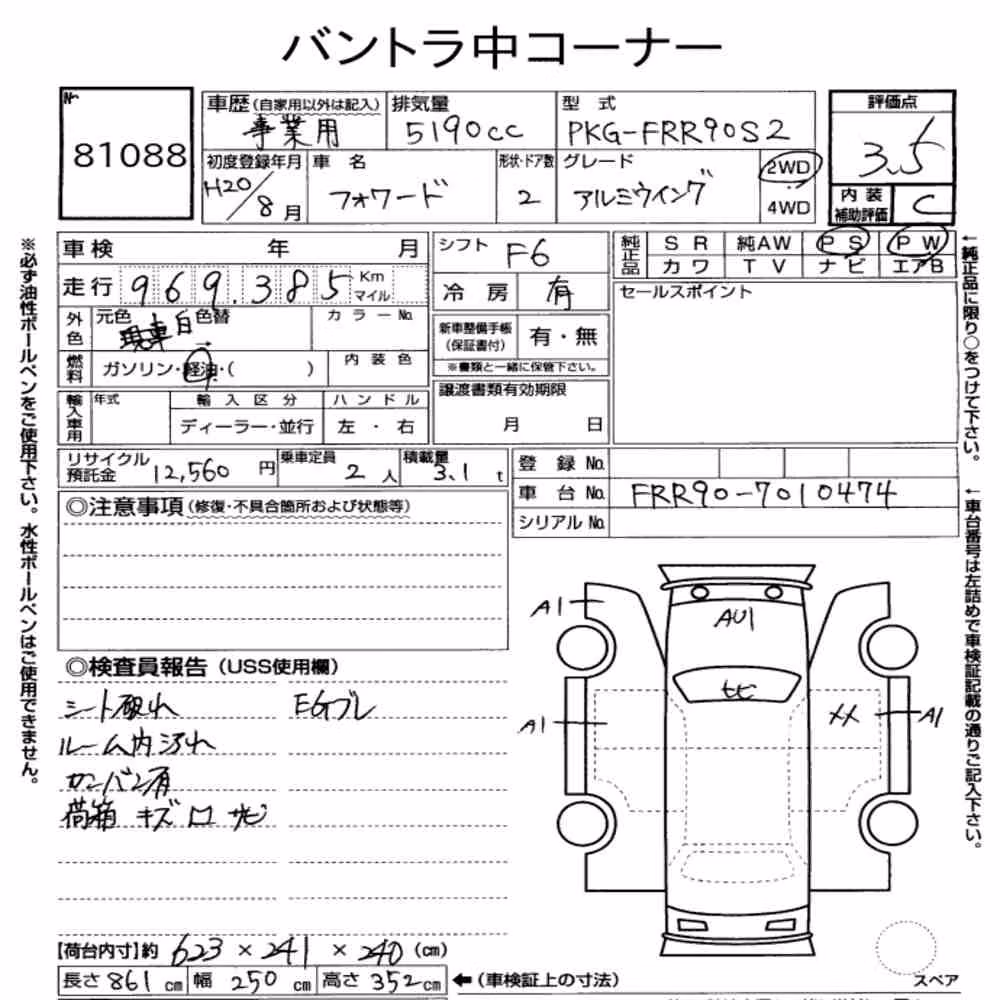 バントラ中コーナー
No.
81088
車歴(自家用以外は記入)
事業用
排気量
5190cc
型 式
PKG-FRR90S2
評価点
3.5
初度登録年月
H20/8月
車 名
フォワード
形状・ドア数
2
グレード
アルミウイング
2WD
4WD
内装
補助評価
C
車検 年 月
シフト
F6
純正品
SR 純AW PS PW
カワ TV ナビ エアB
走行 969,385 Km
マイル
冷房 有
セールスポイント
外色
元色 色替
現車白 →
カラーNo.
新車整備手帳
(保証書付)
有・無
※書類と一緒に保管下さい。
燃料
ガソリン・軽油・( )
内装色
譲渡書類有効期限
月 日
輸入車用
年式
輸入区分
ハンドル
ディーラー・並行
左・右
リサイクル
預託金
12,560 円
乗車定員
2人
積載量
3.1 t
登録No.
車台No. FRR90-7010474
シリアルNo.
◎注意事項(修復・不具合箇所および状態等)
◎検査員報告(USS使用欄)
シート破れ EGブレ
ルーム内汚れ
カンバン有
荷箱 キズ 凹 サビ
A1
AU1
A1
ヒビ
XX
A1
【荷台内寸】約 623 × 241 × 240 (cm)
長さ 861 cm 幅 250 cm 高さ 352 cm ←(車検証上の寸法)
スペア
※必ず油性ボールペンをご使用下さい。水性ボールペンはご使用できません。
←純正品に限り○をつけて下さい。
←車台番号は左詰めで車検証記載の通りご記入下さい。